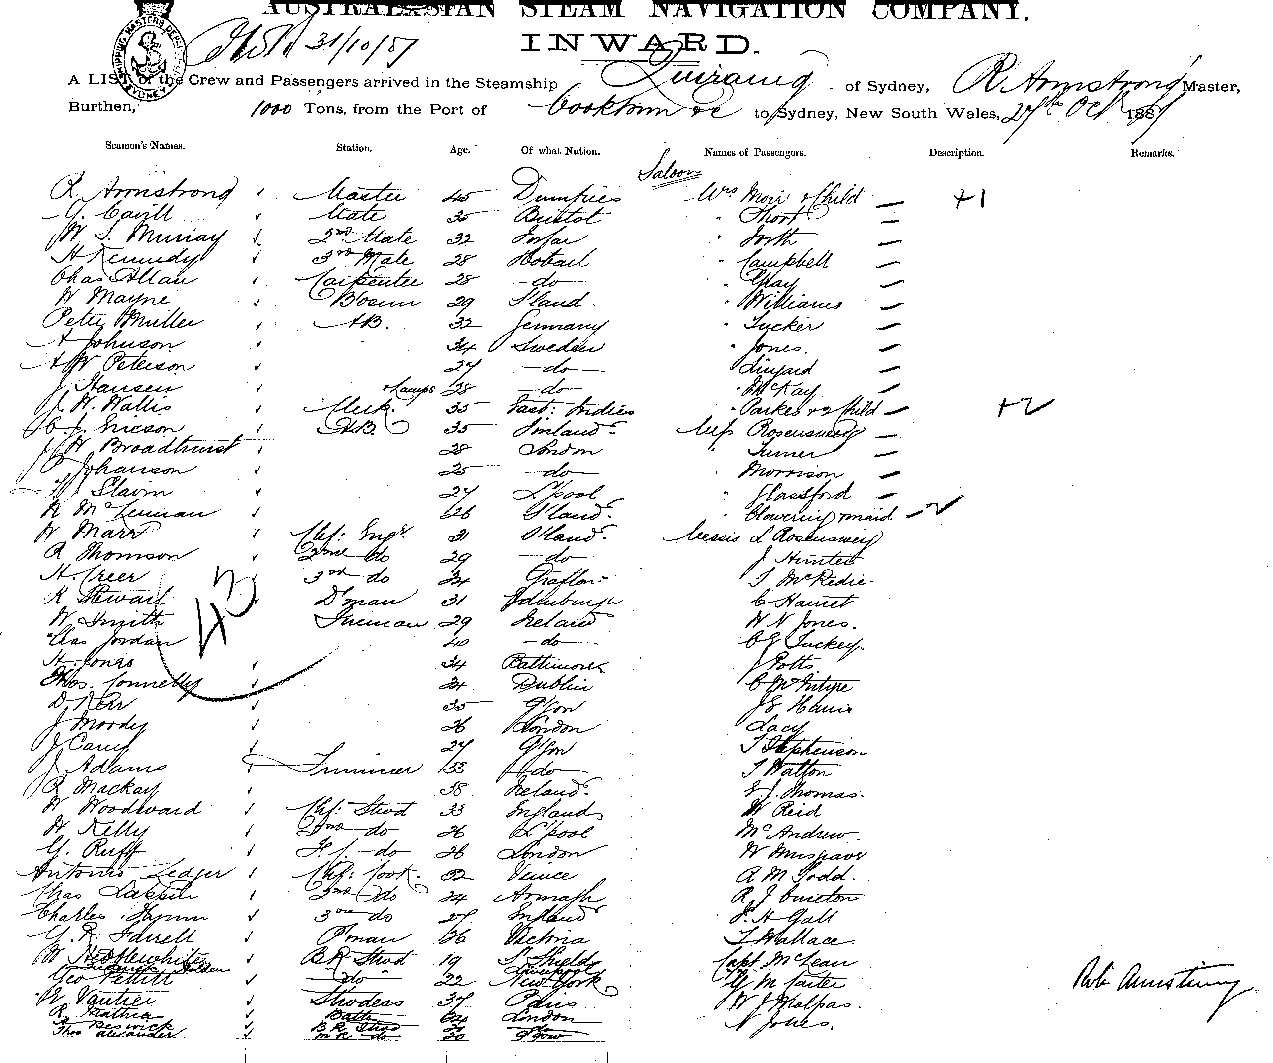 AUSTRALASIAN STEAM NAVIGATION COMPANY.
31/10/87
INWARD.
A LIST of the Crew and Passengers arrived in the Steamship Quiraing of Sydney, R. Armstrong Master,
Burthen, 1000 Tons, from the Port of Cooktown &c to Sydney, New South Wales, 27th Oct 1887
Seamen's Names. Station. Age. Of what Nation. Names of Passengers. Description. Remarks.
Saloon
R. Armstrong Master 45 Dumfries Mrs Moir & Child — +1
G. Cavill Mate 35 Bristol " Short —
W. S. Murray 2nd Mate 32 Forfar " Forth —
H Kennedy 3rd Mate 28 Hobart " Campbell —
Chas Allan Carpenter 28 - do - " Gray —
W Mayne Bosun 29 S'land " Williams —
Peter Muller A.B. 32 Germany " Tucker —
A Johnson 34 Sweden " Jones. —
A W Peterson 27 - do - " —
J. Hansen Lamps 28 - do - " McKay —
J. W. Wallis Clerk. 35 East: Indies " Parker & 2 Child — +2
C. J. Ericson A.B. 35 Finland Miss Rosensweig —
J. H Broadhurst 28 London " Turner —
P Johanson 25 - do - " Morrison —
W Slavin 27 L'pool " Glassford —
R McLennan 26 S'land " Clavering & maid — 2
W Marr Chf: Engr. 31 S'land Messrs L Rosensweig
R Thomson 2nd do 29 - do J Hunter
H. Greer 3rd do 24 Grafton T McKedie
R Stewart D'man 31 Edinburgh C Harriet
W Smith Fireman 29 Ireland W N Jones.
Chas Jordan 40 - do - C G Tuckey.
43
H. Jones 34 Baltimore J Potts
Thos. Connelly 24 Dublin C McIntyre
D Kerr 35 G'gow J E Harris
J Moody 26 London Lacy
J Carey 27 G'gow T Stephenson
J. Adams Trimmer 33 - do - T Walton
R Mackay 38 Ireland. E J. Thomas.
W Woodward Chf: Stwd 33 England W Reid
H Kelly 2nd do 26 L'pool McAndrew
G. Ruff F. C. - do 26 London W Musgrave
Antonio Ledger Chf: Cook. 32 Venice R M Todd.
Chas 2nd do 24 Armagh R J
Charles 3rd do 27 England J. H Gall
G. R. Farrell P'man 26 Victoria T Wallace
W Nebblewhite B.R. Stwd 19 S. Shields Capt McLean
Geo Pettitt - do - 22 New York G M Carter
W Vautier Stwdess 37 Paris W J Malpas.
R Mathia London N Jones.
Beswick B.R. Stwd do
Thos Alexander do 20 G'gow
Rob Armstrong